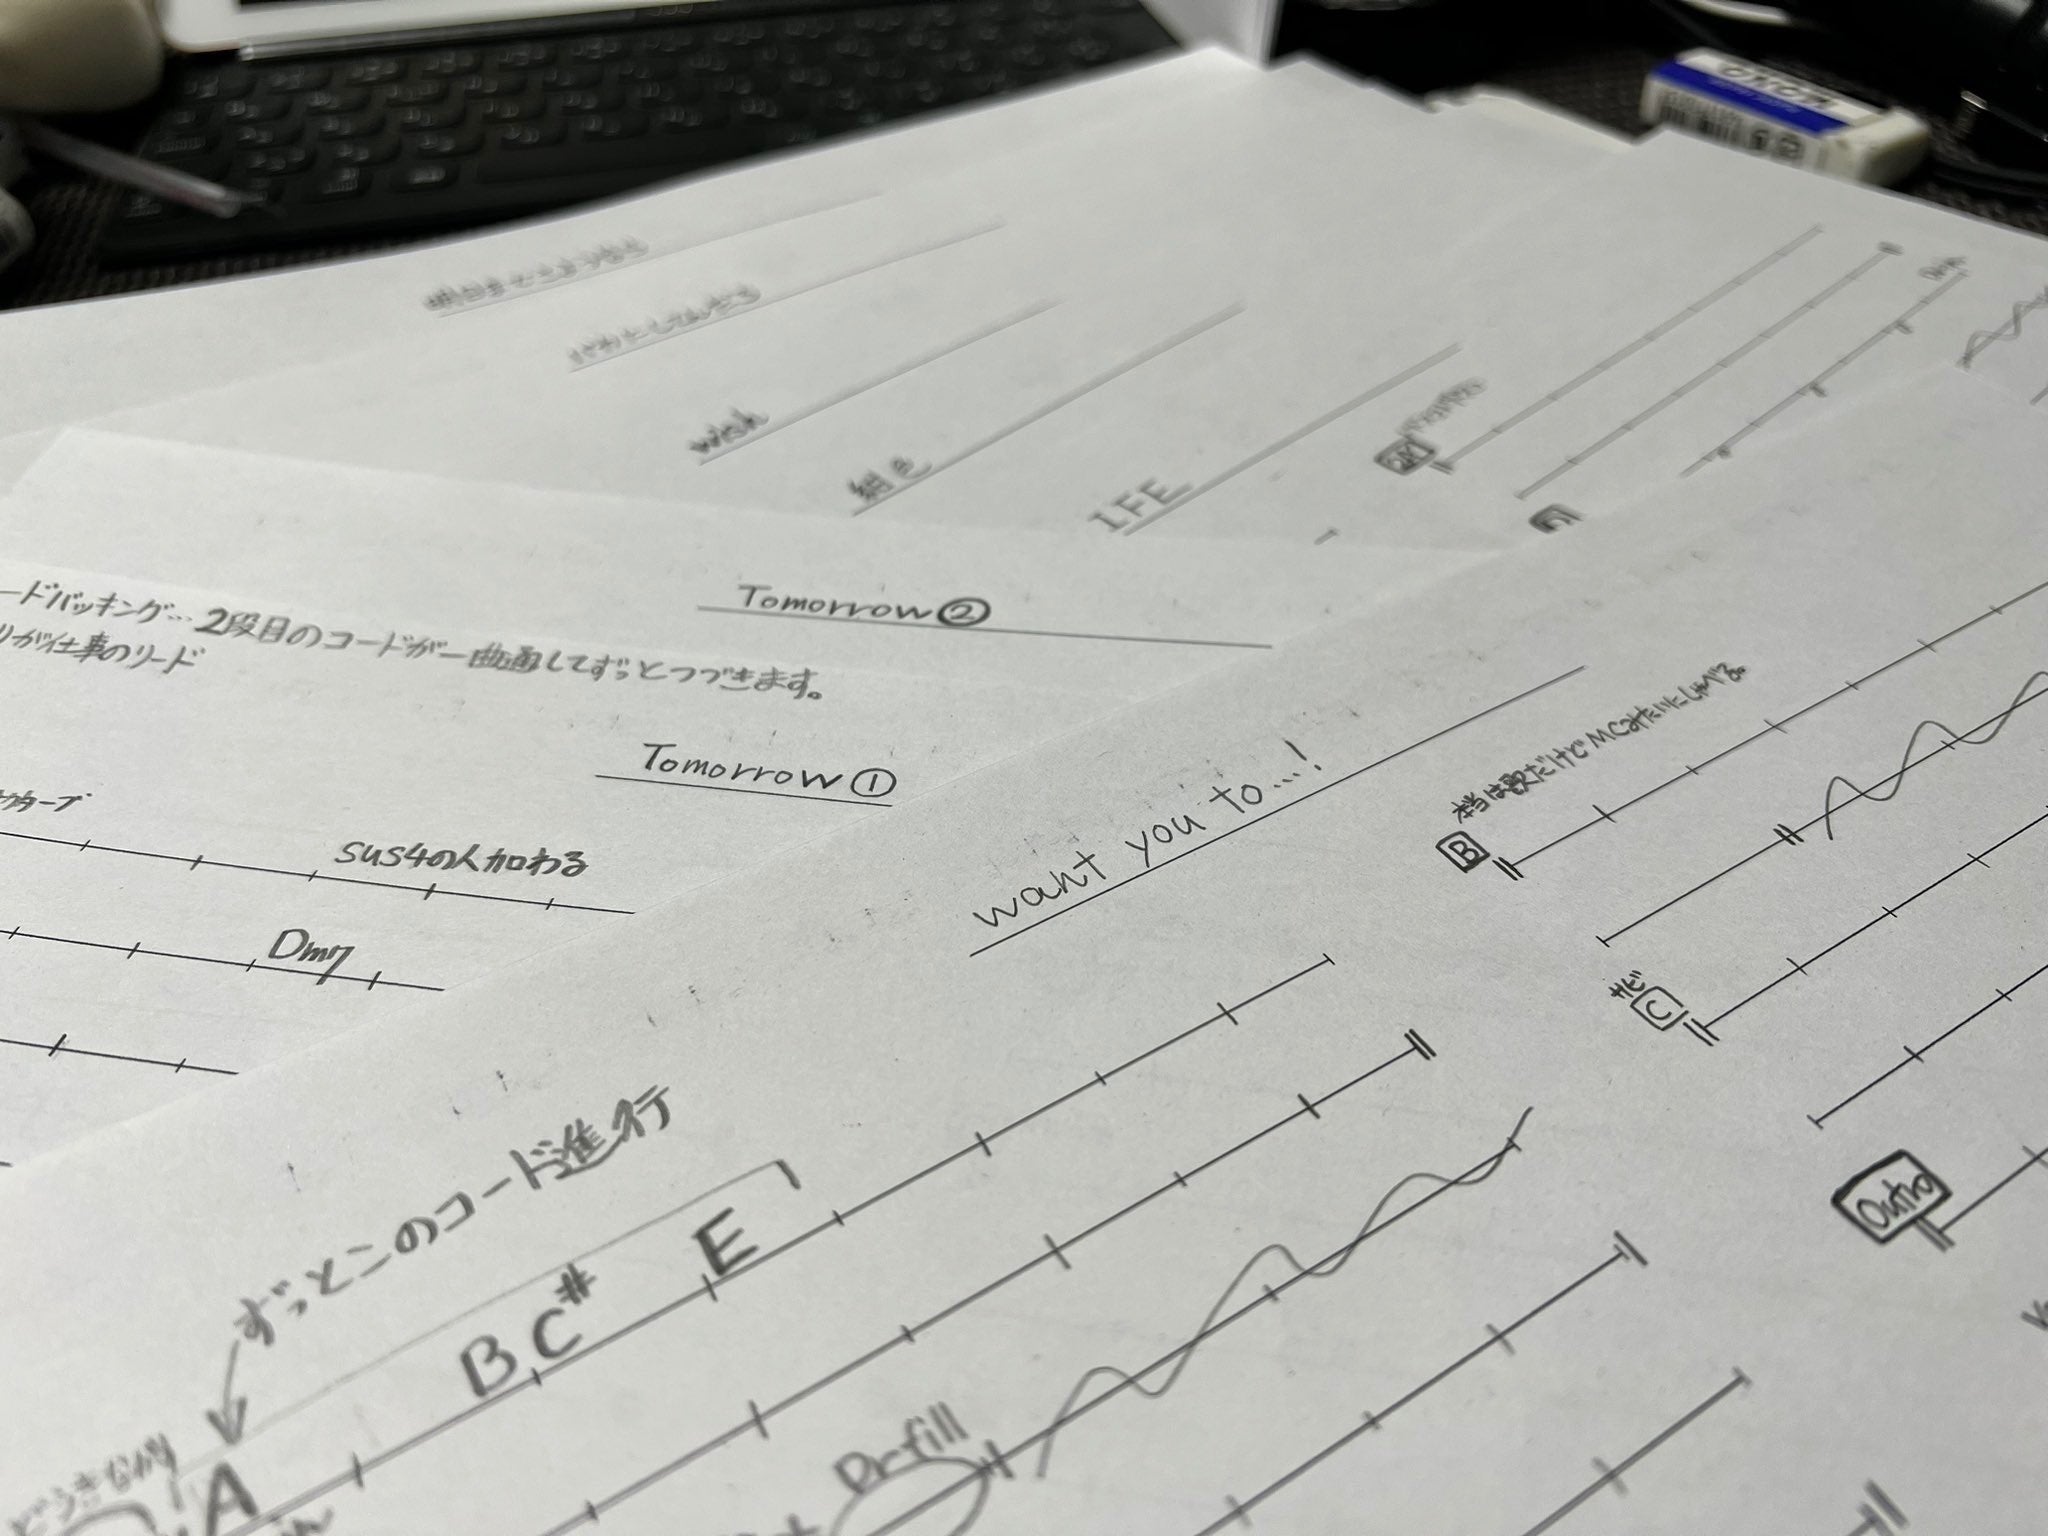 wish
紺色
LIFE
Tomorrow②
ードバッキング…2段目のコードが一曲通してずっとつづきます。
リが仕事のリード
Tomorrow①
sus4の人加わる
Dm7
want you to...!
B
本当は歌だけどMCみたいにしゃべる。
サビ
C
Outro
ずっとこのコード進行
A
B C# E
Dr fill